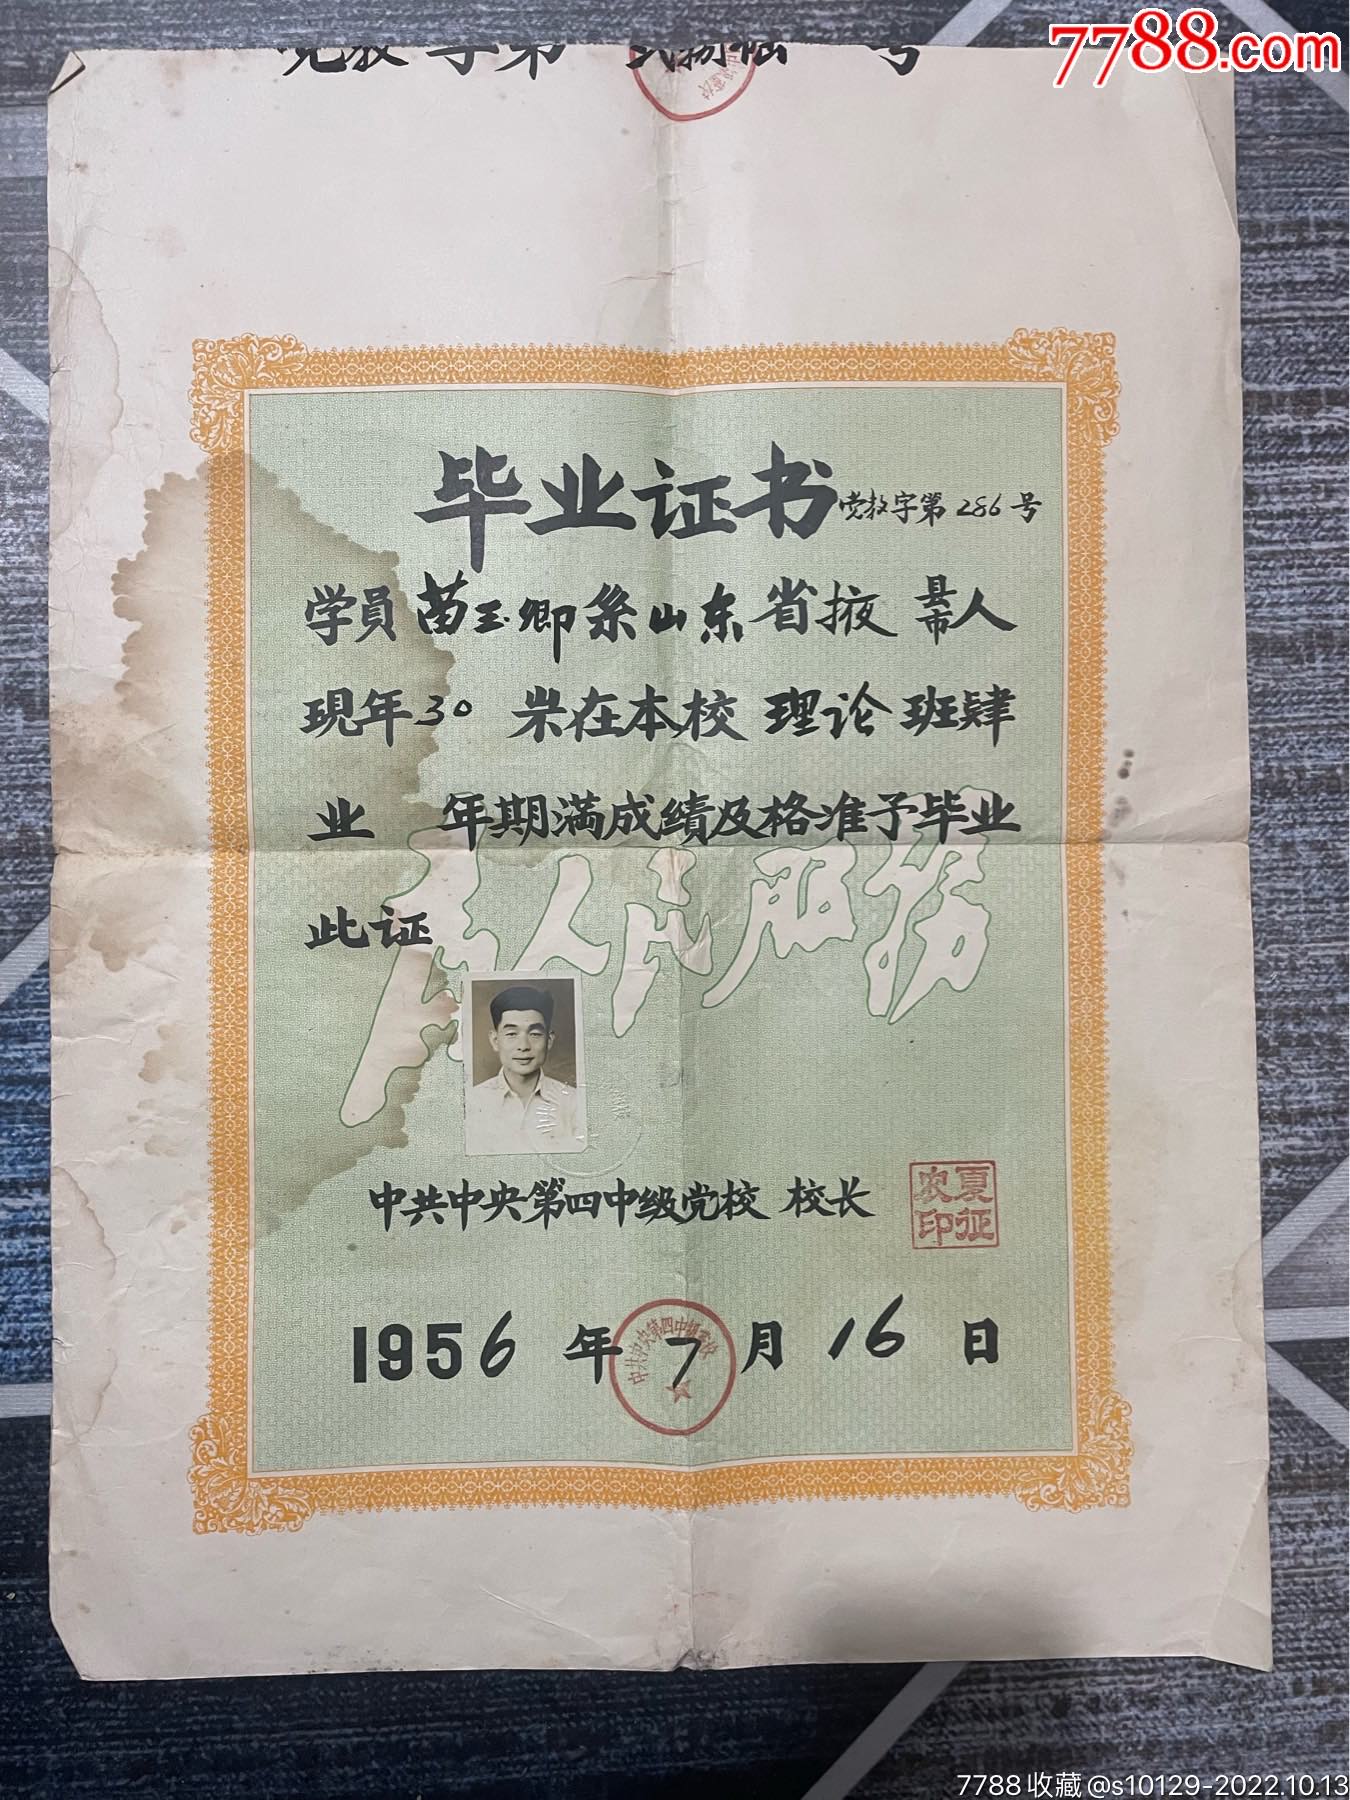 7788.com
党教字第 弍捌陆 号
毕业证书 党教字第 286 号
学員苗玉卿系山东省掖 县市人
現年30 岁在本校 理论班肄
业 年期满成绩及格准予毕业
此证
为人民服务
中共中央第四中级党校 校长
夏征农印
1956 年 7 月 16 日
中共中央第四中级党校
7788收藏@s10129-2022.10.13